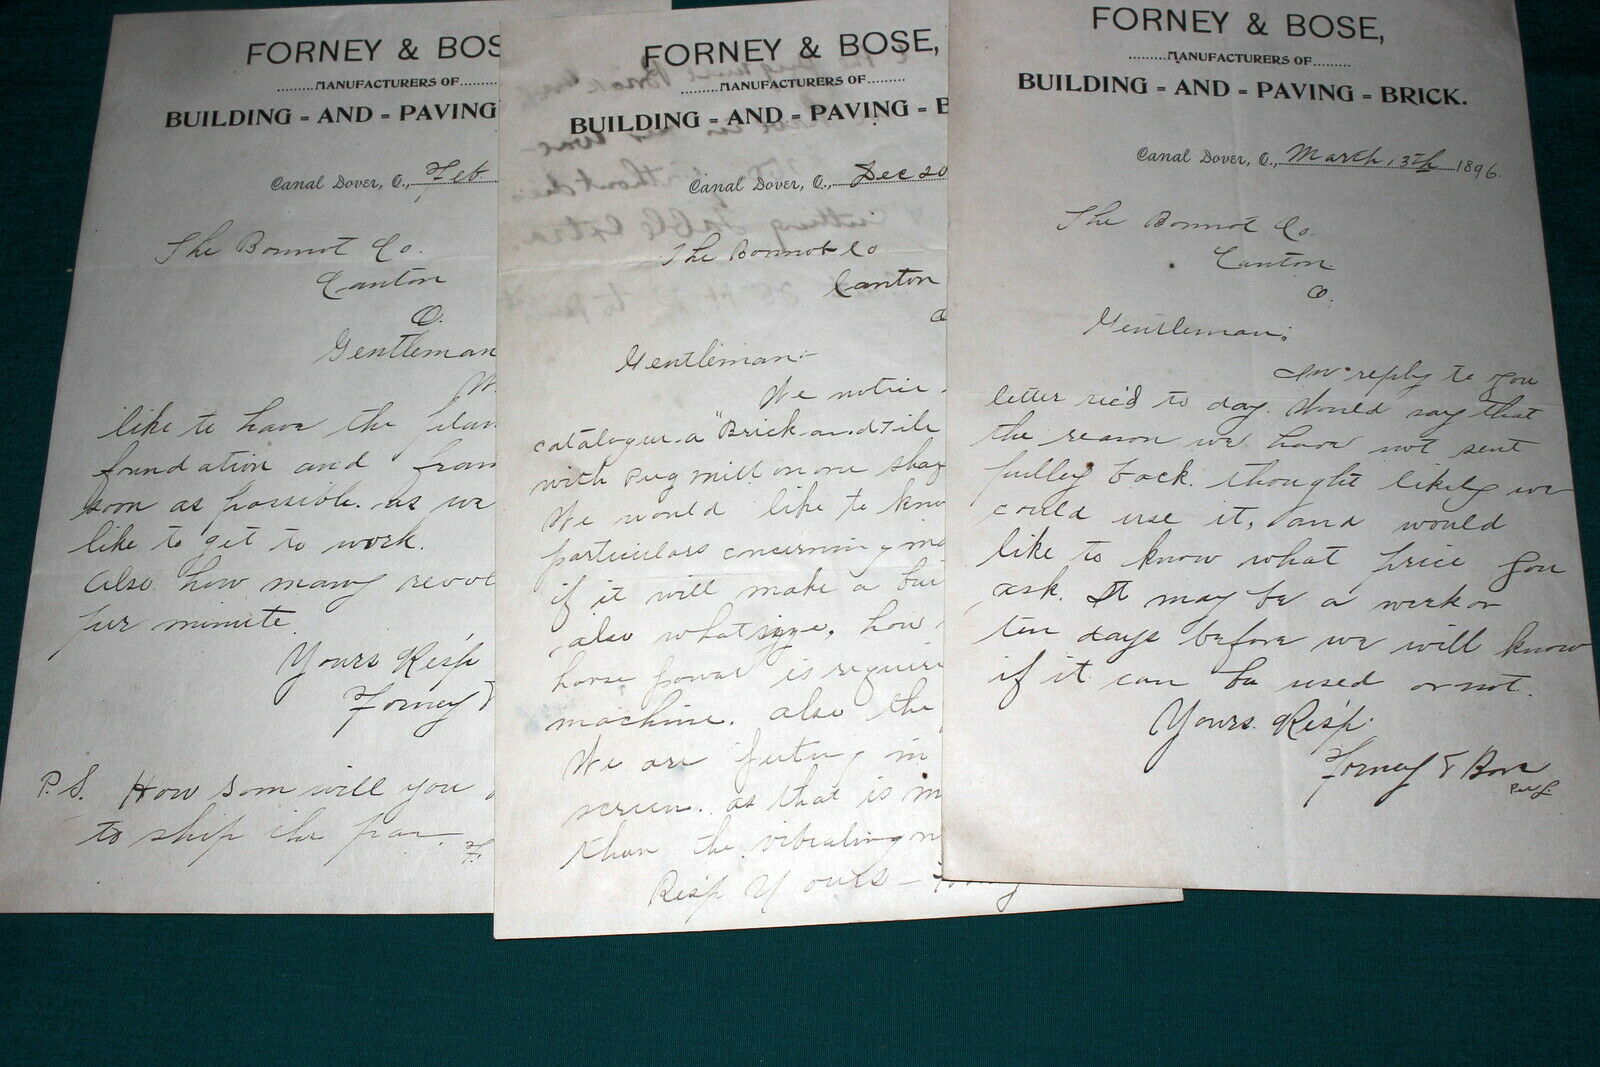 FORNEY & BOS
MANUFACTURERS OF
BUILDING - AND - PAVING
Canal Dover, O., Feb
The Bonnot Co.
Canton
O.
Gentleman
W
like to have the plan
foundation and fram
soon as possible. as we
like to get to work.
Also how many revol
per minute
Yours Resp
Forney &
P.S. How soon will you
to ship the pan. F.
FORNEY & BOSE,
MANUFACTURERS OF
BUILDING - AND - PAVING - B
Canal Dover, O., Dec 20
The Bonnot Co
Canton
O
Gentleman:-
We notice
catalogue a "Brick and Tile
with Pug mill on one shaf
We would like to know
particulars concerning
if it will make a
also what size. how
horse power is requir
machine. also the
We are puting in
screen. as that is
than the vibrating
Resp Yours - Forney
FORNEY & BOSE,
MANUFACTURERS OF
BUILDING - AND - PAVING - BRICK.
Canal Dover, O., March 13th 1896.
The Bonnot Co.
Canton
O.
Gentleman:
In reply to you
letter rec'd to day. Would say that
the reason we have not sent
pulley back. thought likely we
could use it, and would
like to know what price you
ask. It may be a week or
ten days before we will know
if it can be used or not.
Yours Resp.
Forney & Bose